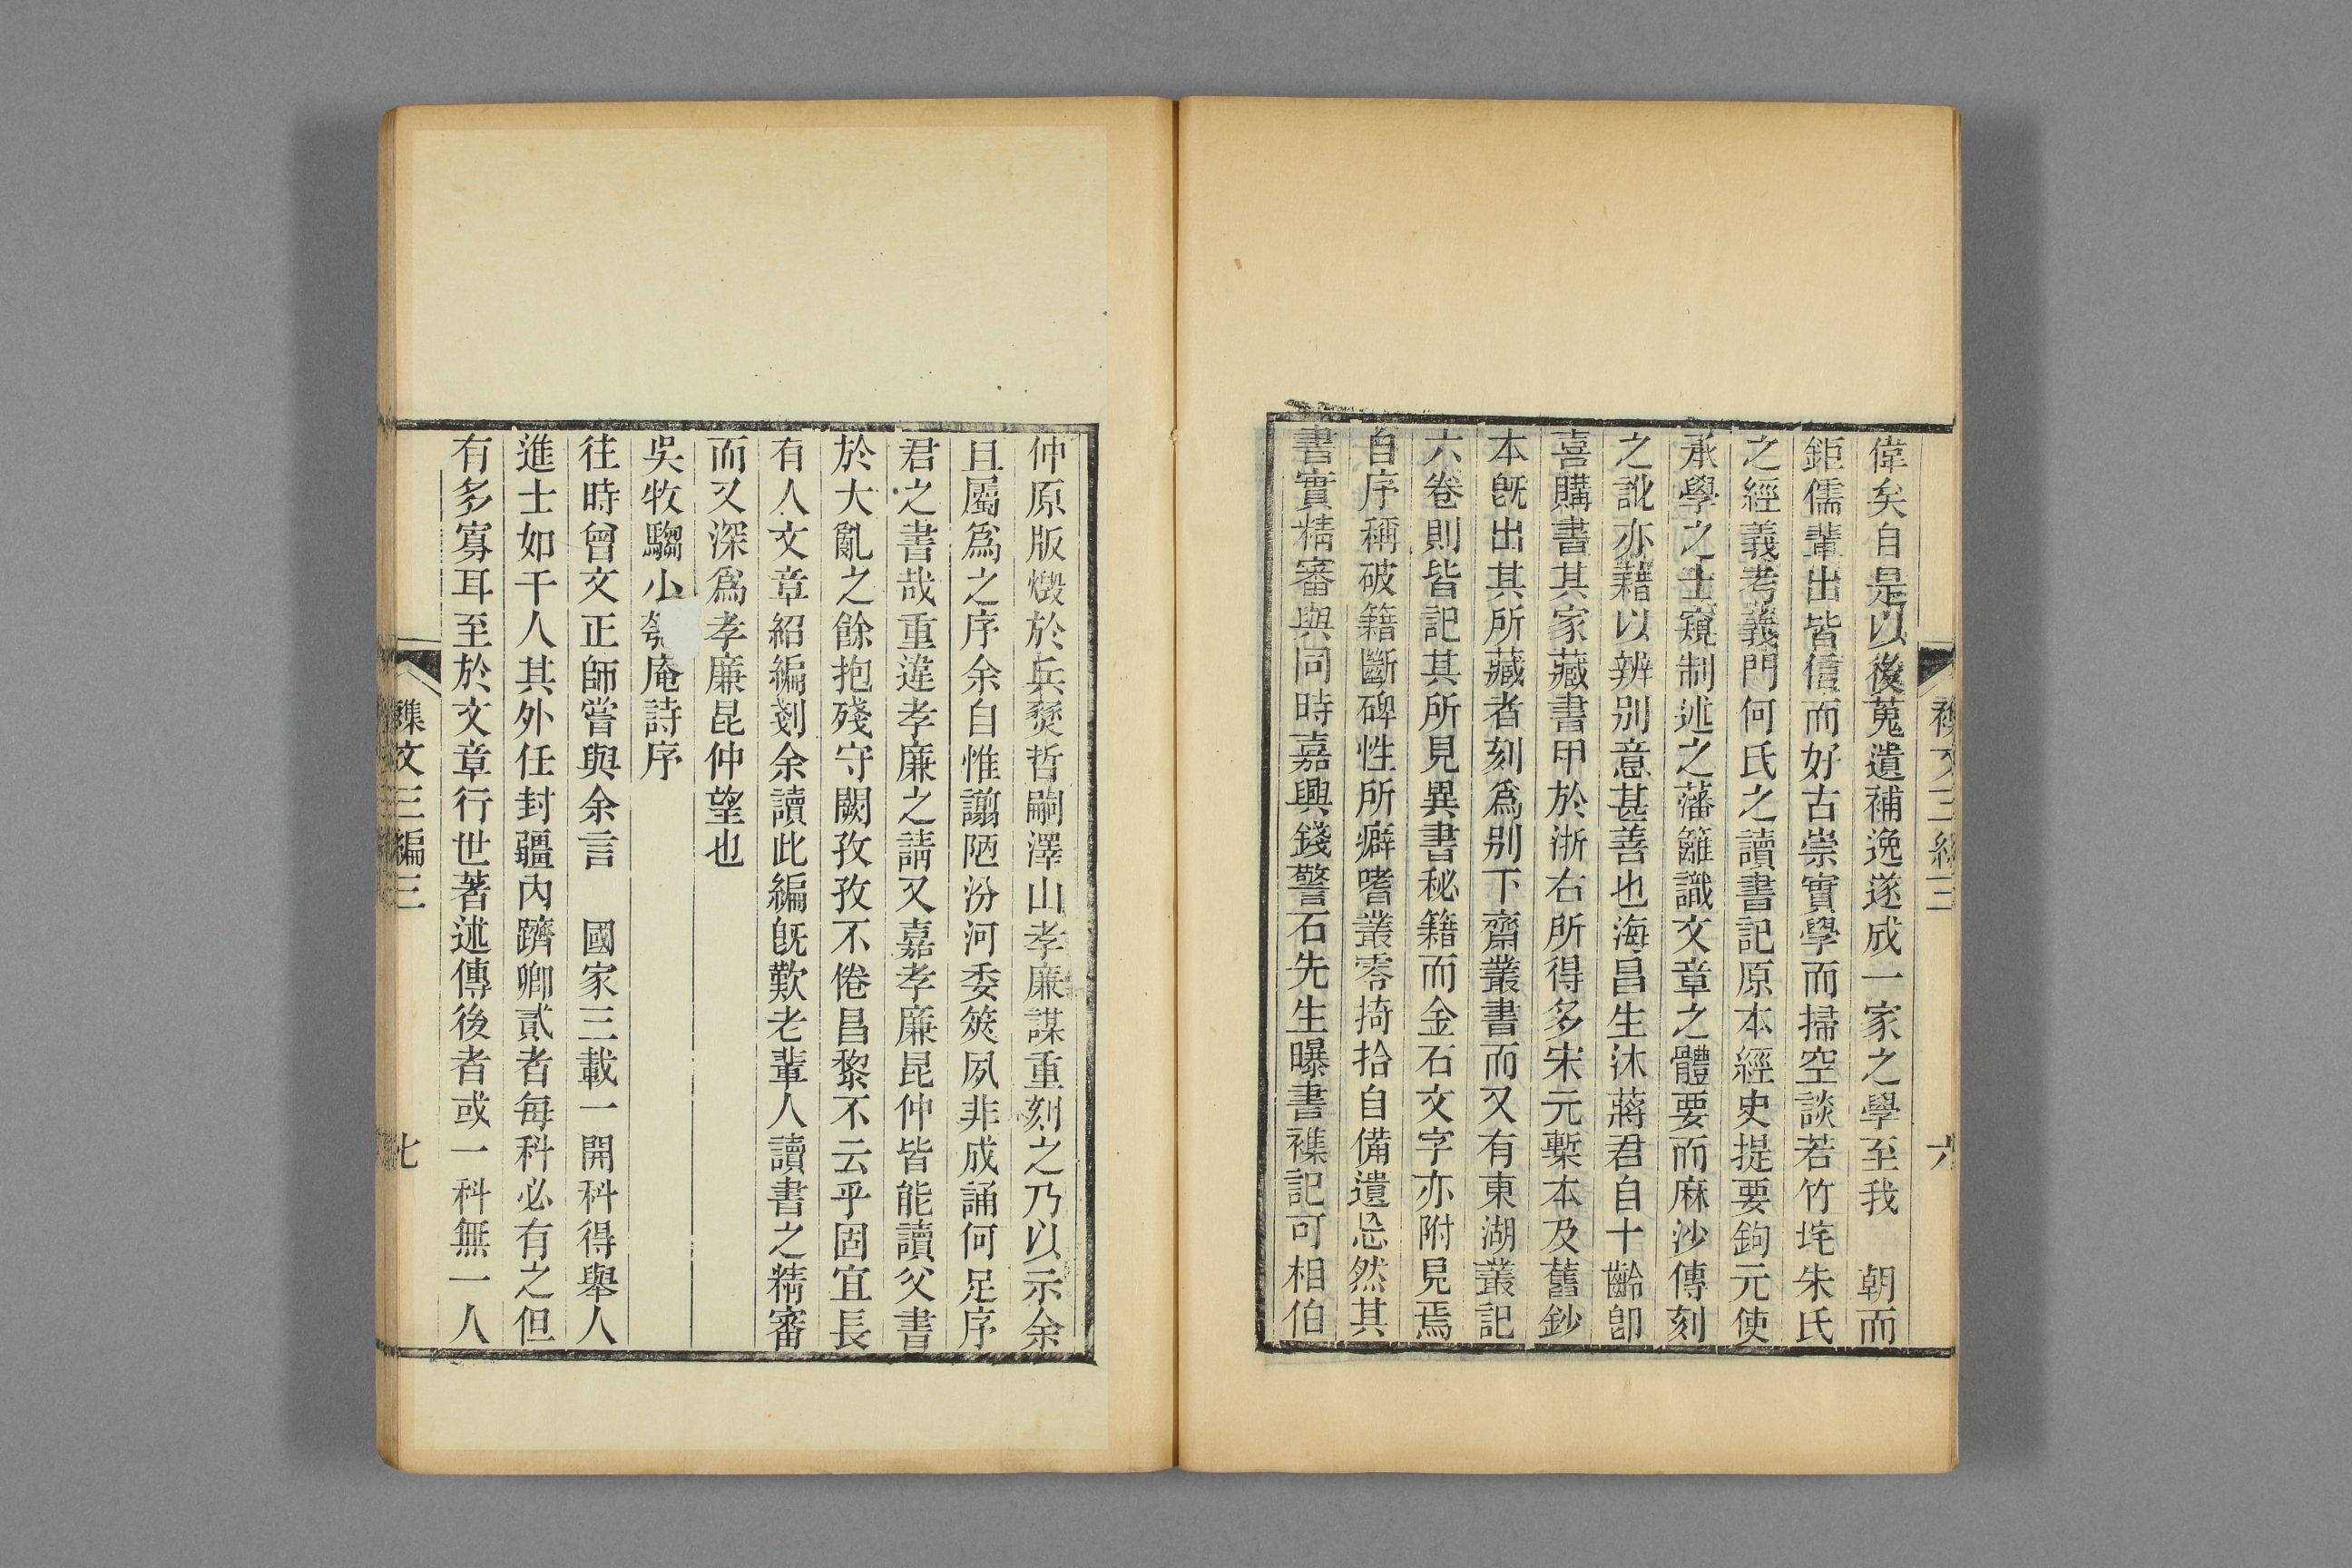 襍文三編三
六
偉矣自是以後蒐遺補逸遂成一家之學至我　朝而
鉅儒輩出皆信而好古崇實學而掃空談若竹垞朱氏
之經義考義門何氏之讀書記原本經史提要鉤元使
承學之士窺制述之藩籬識文章之體要而麻沙傳刻
之訛亦藉以辨別意甚善也海昌生沐蔣君自十齡卽
喜購書其家藏書甲於浙右所得多宋元槧本及舊鈔
本旣出其所藏者刻爲別下齋叢書而又有東湖叢記
六卷則皆記其所見異書秘籍而金石文字亦附見焉
自序稱破籍斷碑性所癖嗜叢零掎拾自備遺忘然其
書實精審與同時嘉興錢警石先生曝書襍記可相伯
仲原版燬於兵燹哲嗣澤山孝廉謀重刻之乃以示余
且屬爲之序余自惟謭陋汾河委筴夙非成誦何足序
君之書哉重違孝廉之請又嘉孝廉昆仲皆能讀父書
於大亂之餘抱殘守闕孜孜不倦昌黎不云乎固宜長
有人文章紹編剗余讀此編旣歎老輩人讀書之精審
而又深爲孝廉昆仲望也
吳牧騶小匏庵詩序
往時曾文正師嘗與余言　國家三載一開科得舉人
進士如干人其外任封疆內躋卿貳者每科必有之但
有多寡耳至於文章行世著述傳後者或一科無一人
襍文三編三
七